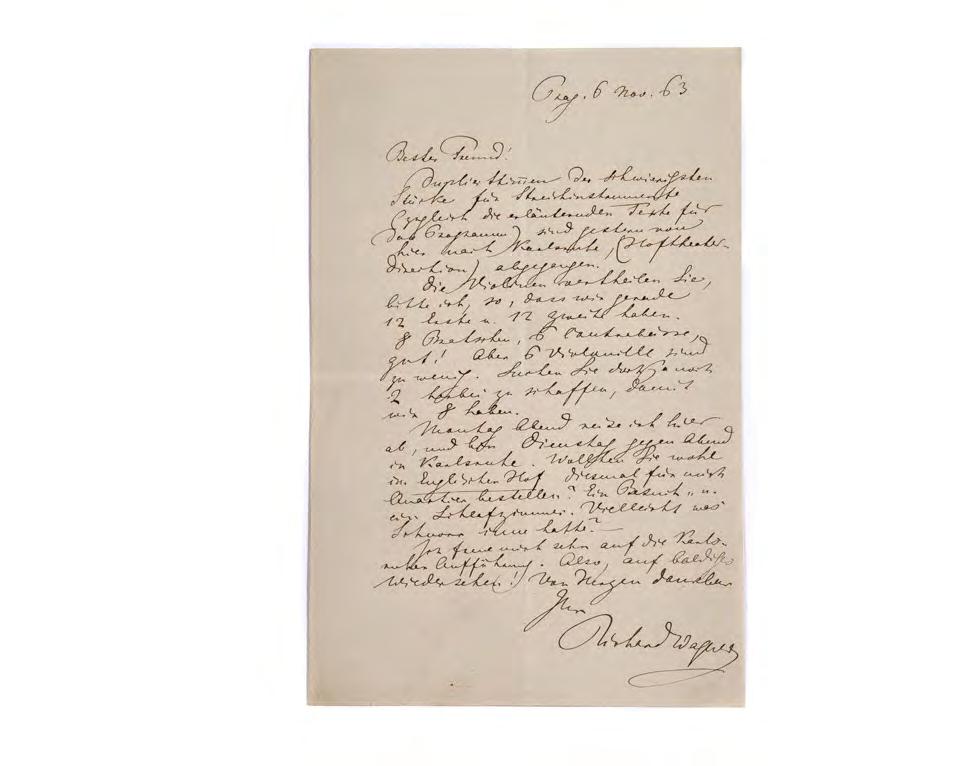 Prag. 6 Nov. 63
Bester Freund!
Duplierstim̄en der schwierigsten
Stücke für Streichinstrumente
(zugleich die erläuternden Texte für
das Programm) sind gestern von
hier nach Karlsruhe, (Hoftheater-
direction) abgegangen.
Die Violinen vertheilen Sie,
bitte ich, so, dass wir gerade
12 erste u. 12 zweite haben.
8 Bratschen, 6 Contrebässe,
gut! Aber 6 Violoncelle sind
zu wenig. Suchen Sie doch ja noch
2 herbei zu schaffen, damit
wir 8 haben.
Montag Abend reise ich hier
ab, und bin Dienstag gegen Abend
in Karlsruhe. Wollten Sie wohl
im Englischen Hof diesmal für mich
Quartier bestellen? Ein Besuch- u.
ein Schlafzimmer. Vielleicht was
Schnorr inne hatte?
Ich freue mich sehr auf die Karls-
ruher Aufführung. Also, auf baldiges
Wiedersehen! Von Herzen dankbar
Ihr
Richard Wagner